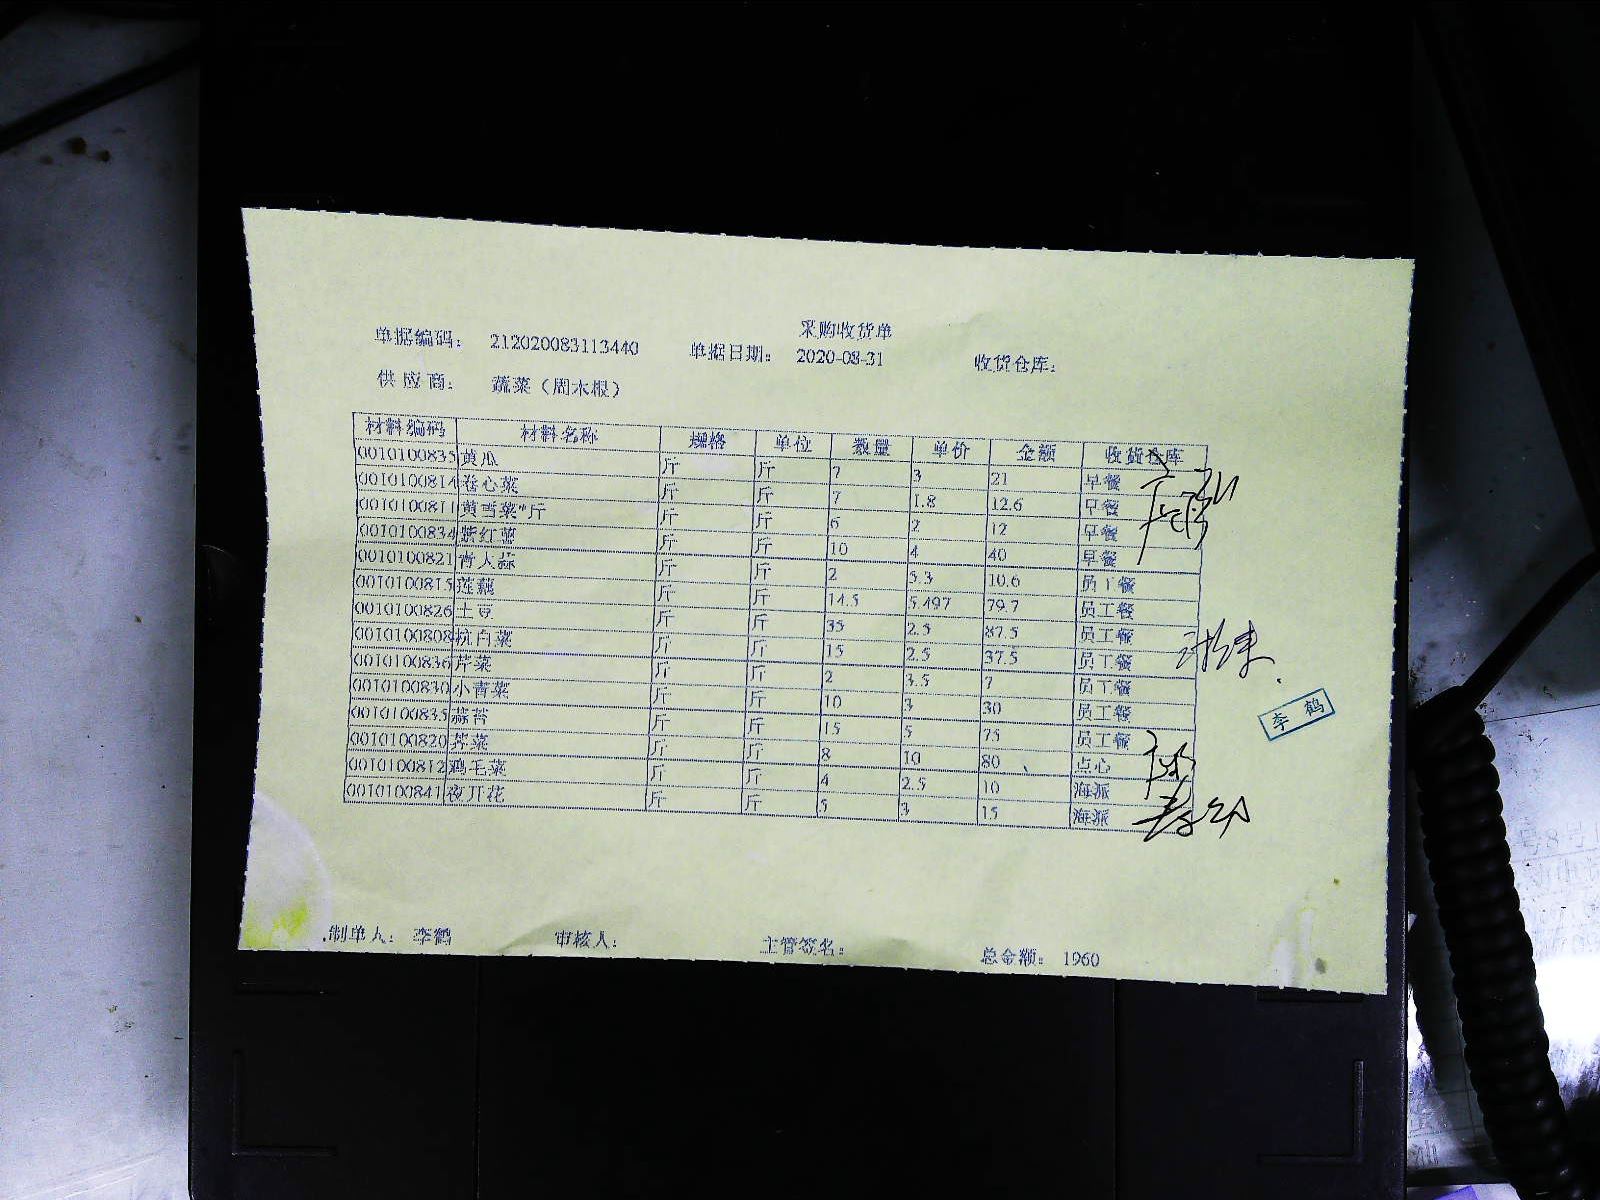 采购收货单
单据编码： 212020083113440 单据日期： 2020-08-31 收货仓库：
供应商： 蔬菜（周木根）
材料编码 材料名称 规格 单位 数量 单价 金额 收货仓库
0010100835 黄瓜 斤 斤 7 3 21 早餐
0010100814 卷心菜 斤 斤 7 1.8 12.6 早餐
0010100811 黄芽菜*斤 斤 斤 6 2 12 早餐
0010100834 紫红薯 斤 斤 10 4 40 早餐
0010100821 青大蒜 斤 斤 2 5.3 10.6 员工餐
0010100815 莲藕 斤 斤 14.5 5.497 79.7 员工餐
0010100826 土豆 斤 斤 35 2.5 87.5 员工餐
0010100808 杭白菜 斤 斤 15 2.5 37.5 员工餐
0010100836 芹菜 斤 斤 2 3.5 7 员工餐
0010100830 小青菜 斤 斤 10 3 30 员工餐
0010100835 蒜苔 斤 斤 15 5 75 员工餐
0010100820 荠菜 斤 斤 8 10 80 点心
0010100812 鸡毛菜 斤 斤 4 2.5 10 海派
0010100841 夜开花 斤 斤 5 3 15 海派
李鹤
制单人： 李鹤 审核人： 主管签名： 总金额： 1960